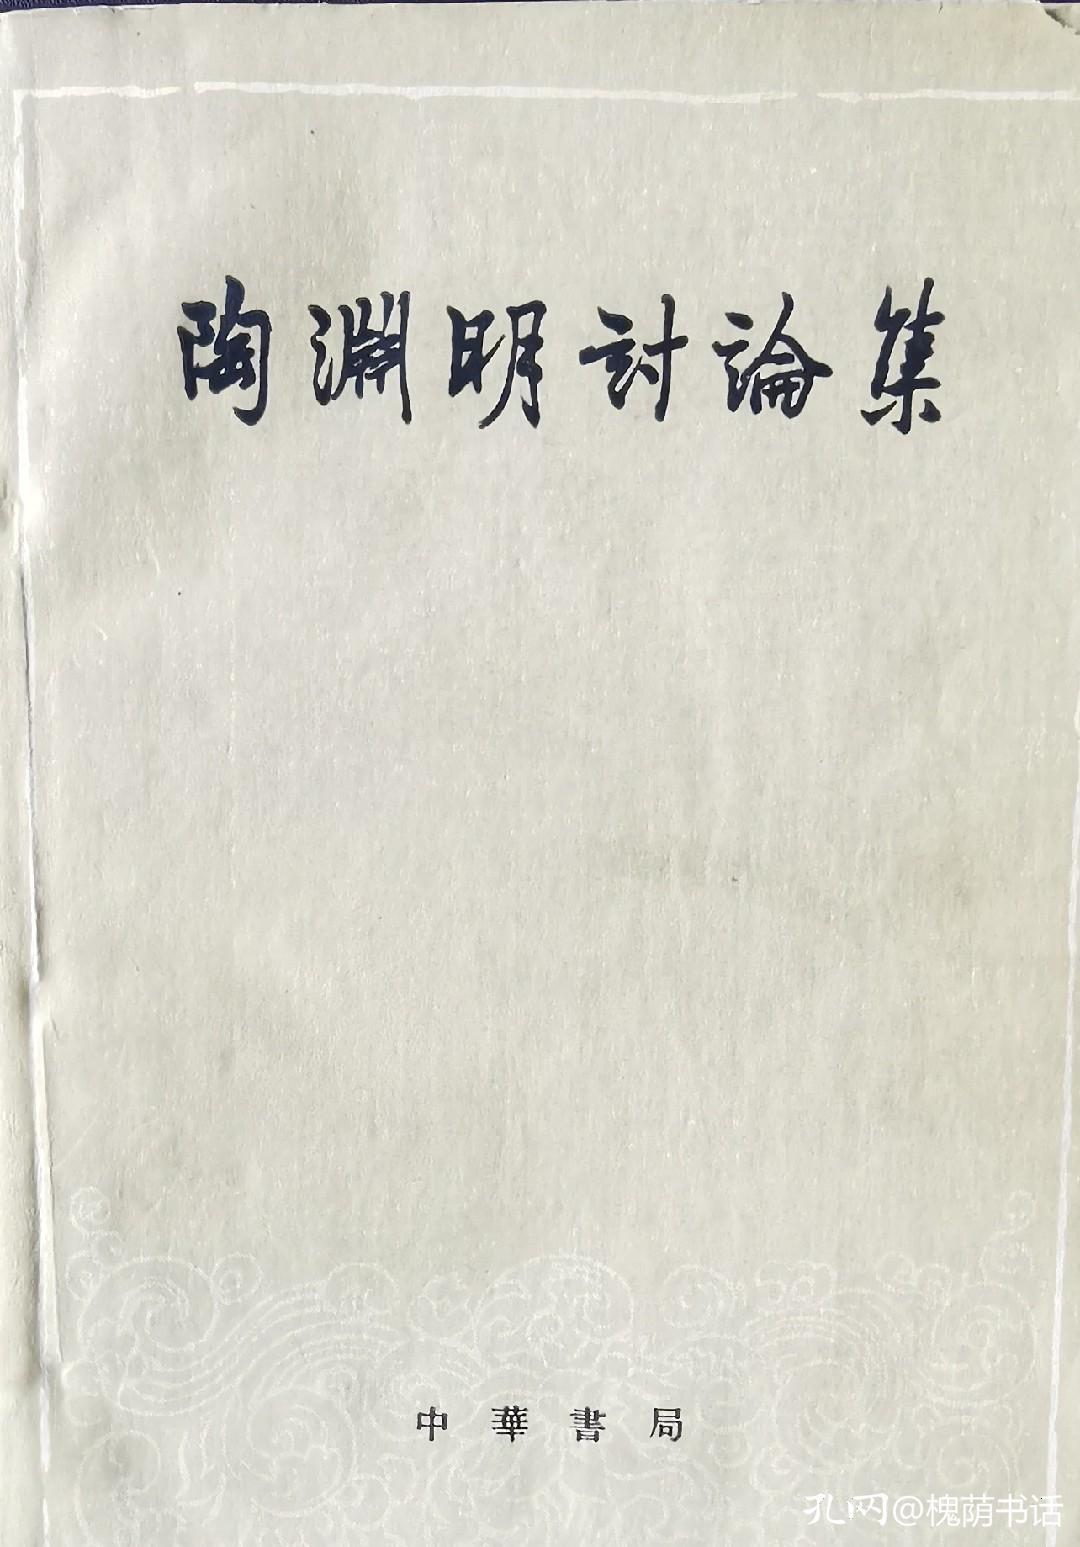 陶淵明討論集
中華書局
孔网@槐荫书话